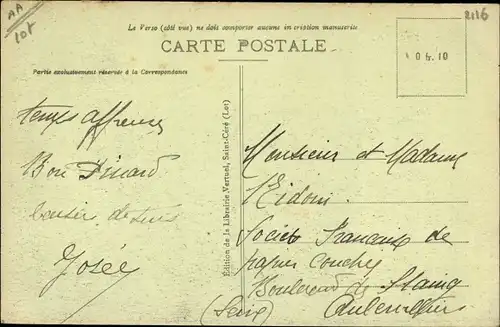 AA
lot
2116
Le Verso (côté vue) ne doit comporter aucune inscription manuscrite
CARTE POSTALE
0 fr. 10
Partie exclusivement réservée à la Correspondance
Edition de la Librairie Vertuel, Saint-Céré (Lot)
temps affreux
Bon
Josée
Monsieur et Madame
Societe Française de
papier couché
Boulevard de Stains
Aubervilliers
(Seine)